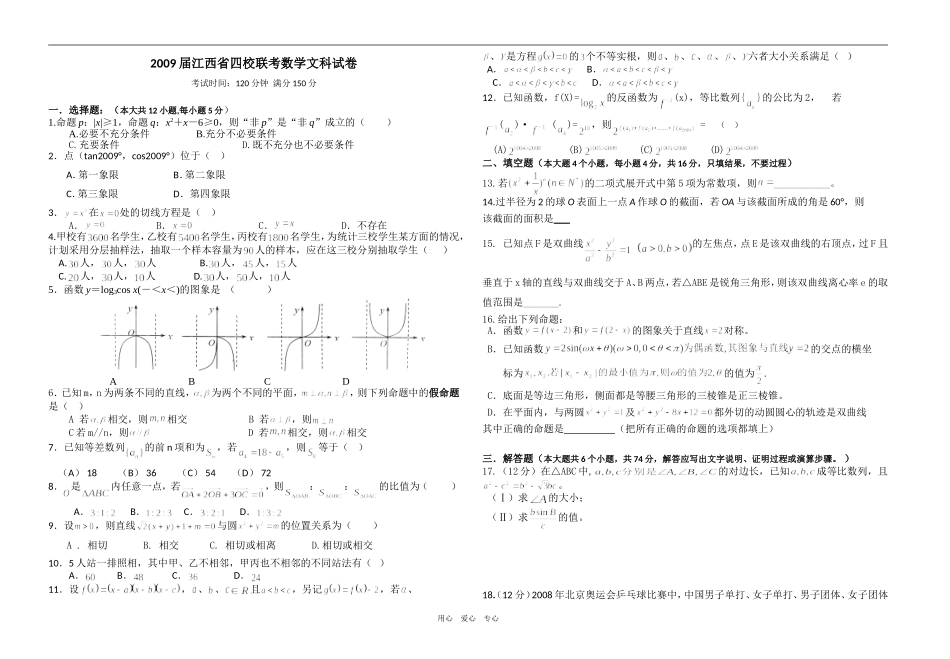 2009 届江西省四校联考数学文科试卷
考试时间：120 分钟 满分 150 分
一．选择题：（本大共 12 小题,每小题 5 分）
1.命题 p：|x|≥1，命题 q：x²＋x－6≥0，则“非 p”是“非 q”成立的（ ）
A.必要不充分条件 B.充分不必要条件
C. 充要条件 D.既不充分也不必要条件
2．点（tan2009°，cos2009°）位于（ ）
A. 第一象限 B. 第二象限
C. 第三象限 D．第四象限
3．y=x³在x=0处的切线方程是（ ）
A．y=0 B．x=0 C．y=x D．不存在
4.甲校有3600名学生,乙校有5400名学生,丙校有1800名学生,为统计三校学生某方面的情况，
计划采用分层抽样法，抽取一个样本容量为90人的样本，应在这三校分别抽取学生（ ）
A.30人，30人，30人 B.30人，45人，15人
C.20人，30人，10人 D.30人，50人，10人
5．函数 y＝log₂cos x(－＜x＜)的图象是 （ ）
A B C D
6．已知 m，n 为两条不同的直线，α,β为两个不同的平面，m⊥α,n⊥β，则下列命题中的假命题
是（ ）
A 若α,β相交，则m,n相交 B 若α⊥β，则m⊥n
C 若 m//n，则α//β D 若m,n相交，则α,β相交
7．已知等差数列{aₙ}的前 n 项和为Sₙ，若a₄=18-a₅，则S₈等于（ ）
（A） 18 （B） 36 （C） 54 （D） 72
8．O是ΔABC内任意一点，若OA+2OB+3OC=0，则SΔOAB：SΔOBC：SΔOAC的比值为（ ）
A．3:1:2 B．1:2:3 C．3:2:1 D．1:3:2
9．设m>0，则直线√2(x+y)+1+m=0与圆x²+y²=m的位置关系为（ ）
A ．相切 B．相交 C．相切或相离 D.相切或相交
10．5 人站一排照相，其中甲、乙不相邻，甲丙也不相邻的不同站法有（ ）
A．60 B．48 C．36 D．24
11．设f(x)=(x-a)(x-b)(x-c)，a、b、c∈R且a<b<c，另记g(x)=f(x)-2，若α、
β、γ是方程g(x)=0的3个不等实根，则a、b、c、α、β、γ六者大小关系满足（ ）
A．a<α<β<b<c<γ B．a<α<b<β<c<γ
C．α<a<β<b<γ<c D．α<a<b<β<γ<c
12．已知函数，f(X)=log₂x的反函数为f⁻¹(x)，等比数列{aₙ}的公比为 2， 若
(A) (B) (C) (D)
二、填空题（本大题 4 个小题，每小题 4 分，共 16 分，只填结果，不要过程）
13. 若(x²+1/x)ⁿ(n∈N*)的二项式展开式中第 5 项为常数项，则n=__________。
14.过半径为 2 的球 O 表面上一点 A 作球 O 的截面，若 OA 与该截面所成的角是 60°，则
该截面的面积是___
15．已知点 F 是双曲线x²/a²-y²/b²=1 (a>0,b>0)的左焦点，点 E 是该双曲线的右顶点，过 F 且
垂直于 x 轴的直线与双曲线交于 A、B 两点，若△ABE 是锐角三角形，则该双曲线离心率 e 的取
值范围是______.
16. 给出下列命题：
A．函数y=f(x-2)和y=f(2-x)的图象关于直线x=2对称。
B．已知函数y=2sin(ωx+θ)(ω>0,0<θ<π)为偶函数,其图象与直线y=2的交点的横坐
标为x₁,x₂.若|x₁-x₂|的最小值为π,则ω的值为2,θ的值为π/2.
C．底面是等边三角形，侧面都是等腰三角形的三棱锥是正三棱锥。
D．在平面内，与两圆x²+y²=1及x²+y²-8x+12=0都外切的动圆圆心的轨迹是双曲线
其中正确的命题是__________（把所有正确的命题的选项都填上）
三．解答题（本大题共 6 个小题，共 74 分，解答应写出文字说明、证明过程或演算步骤。）
17.（12 分）在△ABC 中，a,b,c分别是∠A,∠B,∠C的对边长，已知a,b,c成等比数列，且
a²-c²=b²-√3bc。
（Ⅰ）求∠A的大小；
（Ⅱ）求bsinB/c的值。
18.（12 分）2008 年北京奥运会乒乓球比赛中，中国男子单打、女子单打、男子团体、女子团体
用心 爱心 专心